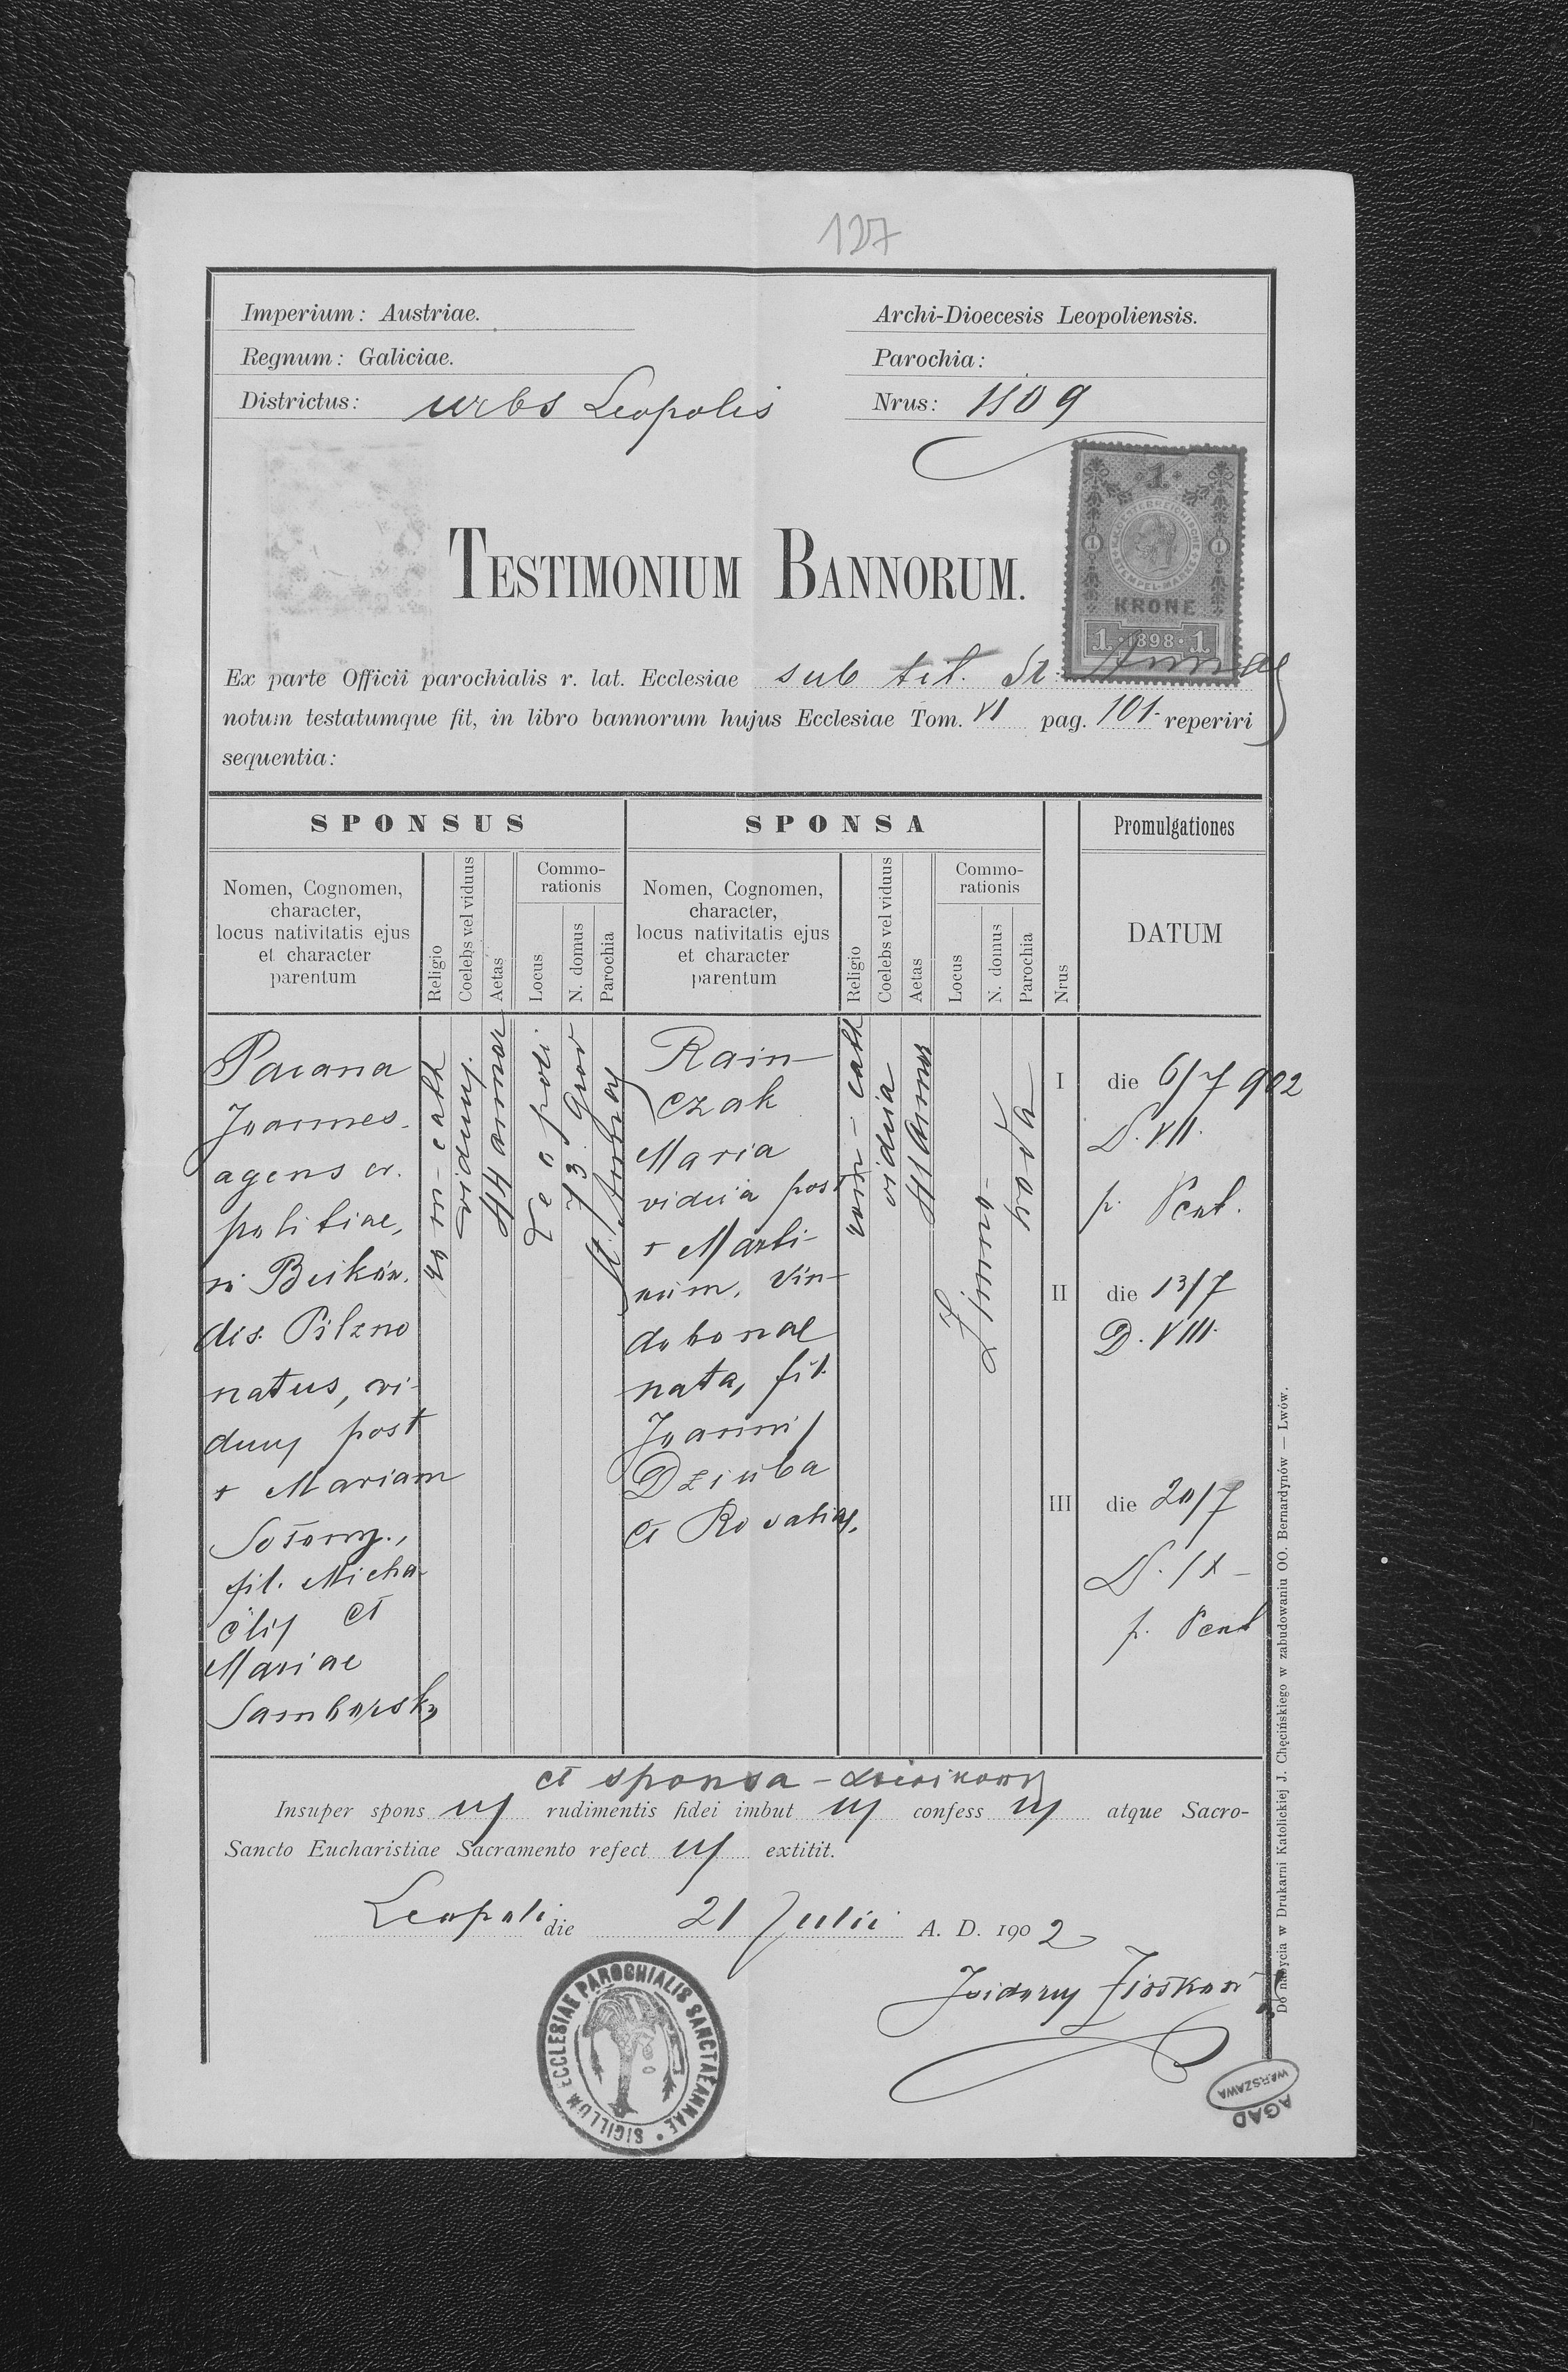 127
Imperium: Austriae.
Archi-Dioecesis Leopoliensis.
Regnum: Galiciae.
Parochia:
Districtus: urbs Leopolis
Nrus: 1109
1
K.K. OESTERREICHISCHE STEMPEL-MARKE
1 1
KRONE
1 · 1898 · 1
TESTIMONIUM BANNORUM.
Ex parte Officii parochialis r. lat. Ecclesiae sub tit. St. Annae
notum testatumque fit, in libro bannorum hujus Ecclesiae Tom. VI pag. 101- reperiri
sequentia:
SPONSUS
Nomen, Cognomen,
character,
locus nativitatis ejus
et character
parentum
Religio
Coelebs vel viduus
Aetas
Commo-
rationis
Locus
N. domus
Parochia
SPONSA
Nomen, Cognomen,
character,
locus nativitatis ejus
et character
parentum
Religio
Coelebs vel viduus
Aetas
Commo-
rationis
Locus
N. domus
Parochia
Nrus
Promulgationes
DATUM
Pacana
Joannes.
agens
politiae,
dis. Pilzno
natus, vi-
duus post
+ Mariam
fil. Micha-
elis et
Mariae
Samborsk
rom-cath
viduus.
44 annor
Leopoli.
73 Grod
St. Annae
Rain-
czak
Maria
vidua post
+ Marti-
num, Vin-
dobonae
nata, fil.
Joannis
Dziuba
et Rosaliae.
rom-cath
vidua
41 annor
Zimno-
woda
I die 6/7 902
D. VII.
p. Pent.
II die 13/7
D. VIII.
III die 20/7
D. IX -
p. Pent
et sponsa -
Insuper spons us rudimentis fidei imbut us confess us atque Sacro-
Sancto Eucharistiae Sacramento refect us extitit.
Leopoli die 21 Julii A. D. 1902
SIGILLUM ECCLESIAE PAROCHIALIS SANCTAE ANNAE
Do nabycia w Drukarni Katolickiej J. Chęcińskiego w zabudowaniu OO. Bernardynów — Lwów.
WARSZAWA
AGAD